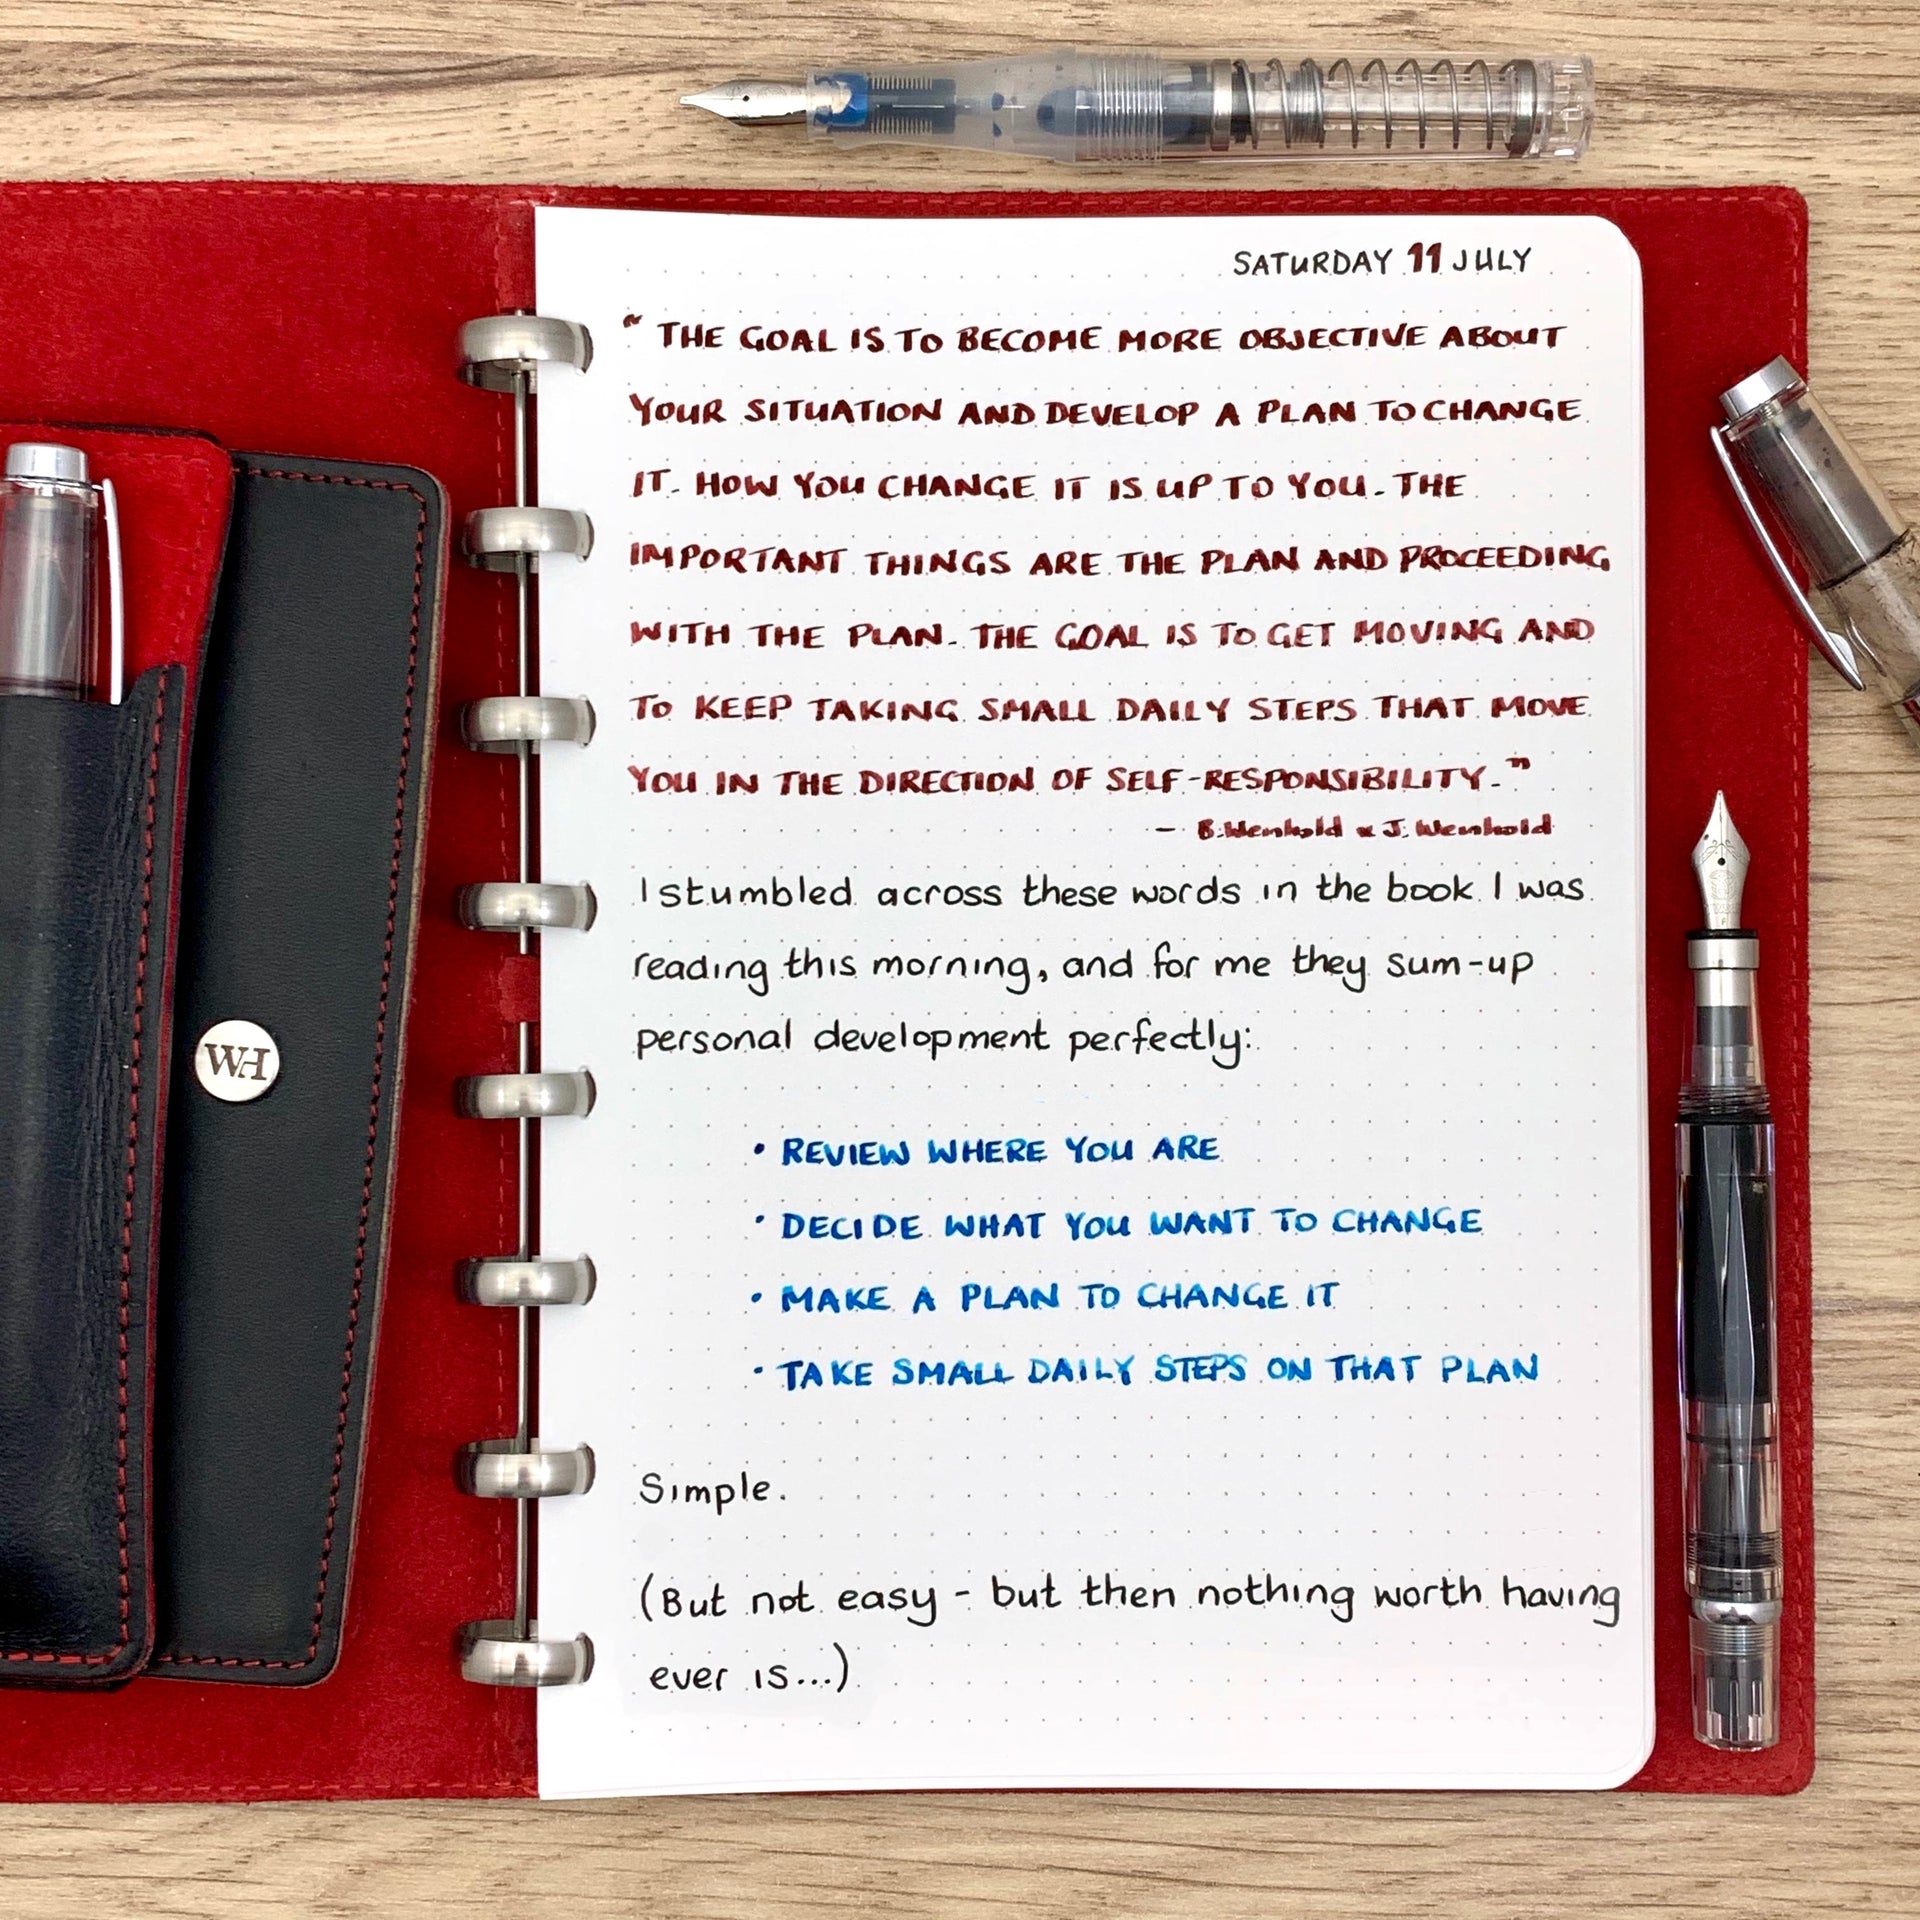 SATURDAY 11 JULY
" THE GOAL IS TO BECOME MORE OBJECTIVE ABOUT
YOUR SITUATION AND DEVELOP A PLAN TO CHANGE
IT. HOW YOU CHANGE IT IS UP TO YOU. THE
IMPORTANT THINGS ARE THE PLAN AND PROCEEDING
WITH THE PLAN. THE GOAL IS TO GET MOVING AND
TO KEEP TAKING SMALL DAILY STEPS THAT MOVE
YOU IN THE DIRECTION OF SELF-RESPONSIBILITY."
— B. Wenhold & J. Wenhold
I stumbled across these words in the book I was
reading this morning, and for me they sum-up
personal development perfectly:
• REVIEW WHERE YOU ARE
• DECIDE WHAT YOU WANT TO CHANGE
• MAKE A PLAN TO CHANGE IT
• TAKE SMALL DAILY STEPS ON THAT PLAN
Simple.
(But not easy - but then nothing worth having
ever is...)
WH